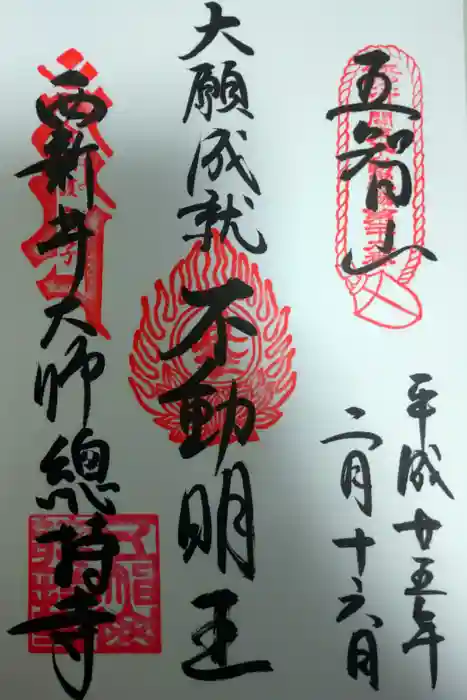 五智山
平成廿五年
二月十六日
大願成就 不動明王
西新井大師總持寺